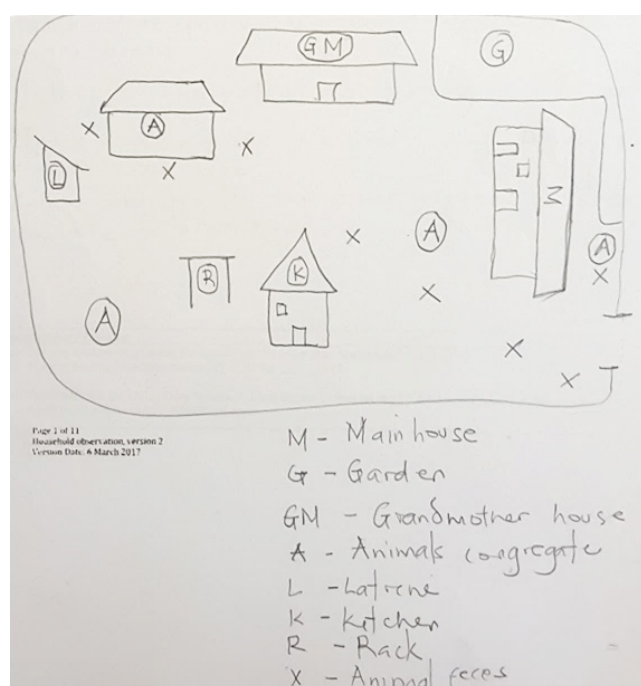 GM
G
X
A
X
X
L
M
X
A
A
R
K
X
X
A
X
X
Page 1 of 11
Household observation, version 2
Version Date: 6 March 2017
M - Main house
G - Garden
GM - Grandmother house
A - Animals congregate
L - Latrene
K - Kitchen
R - Rack
X - Animal feces